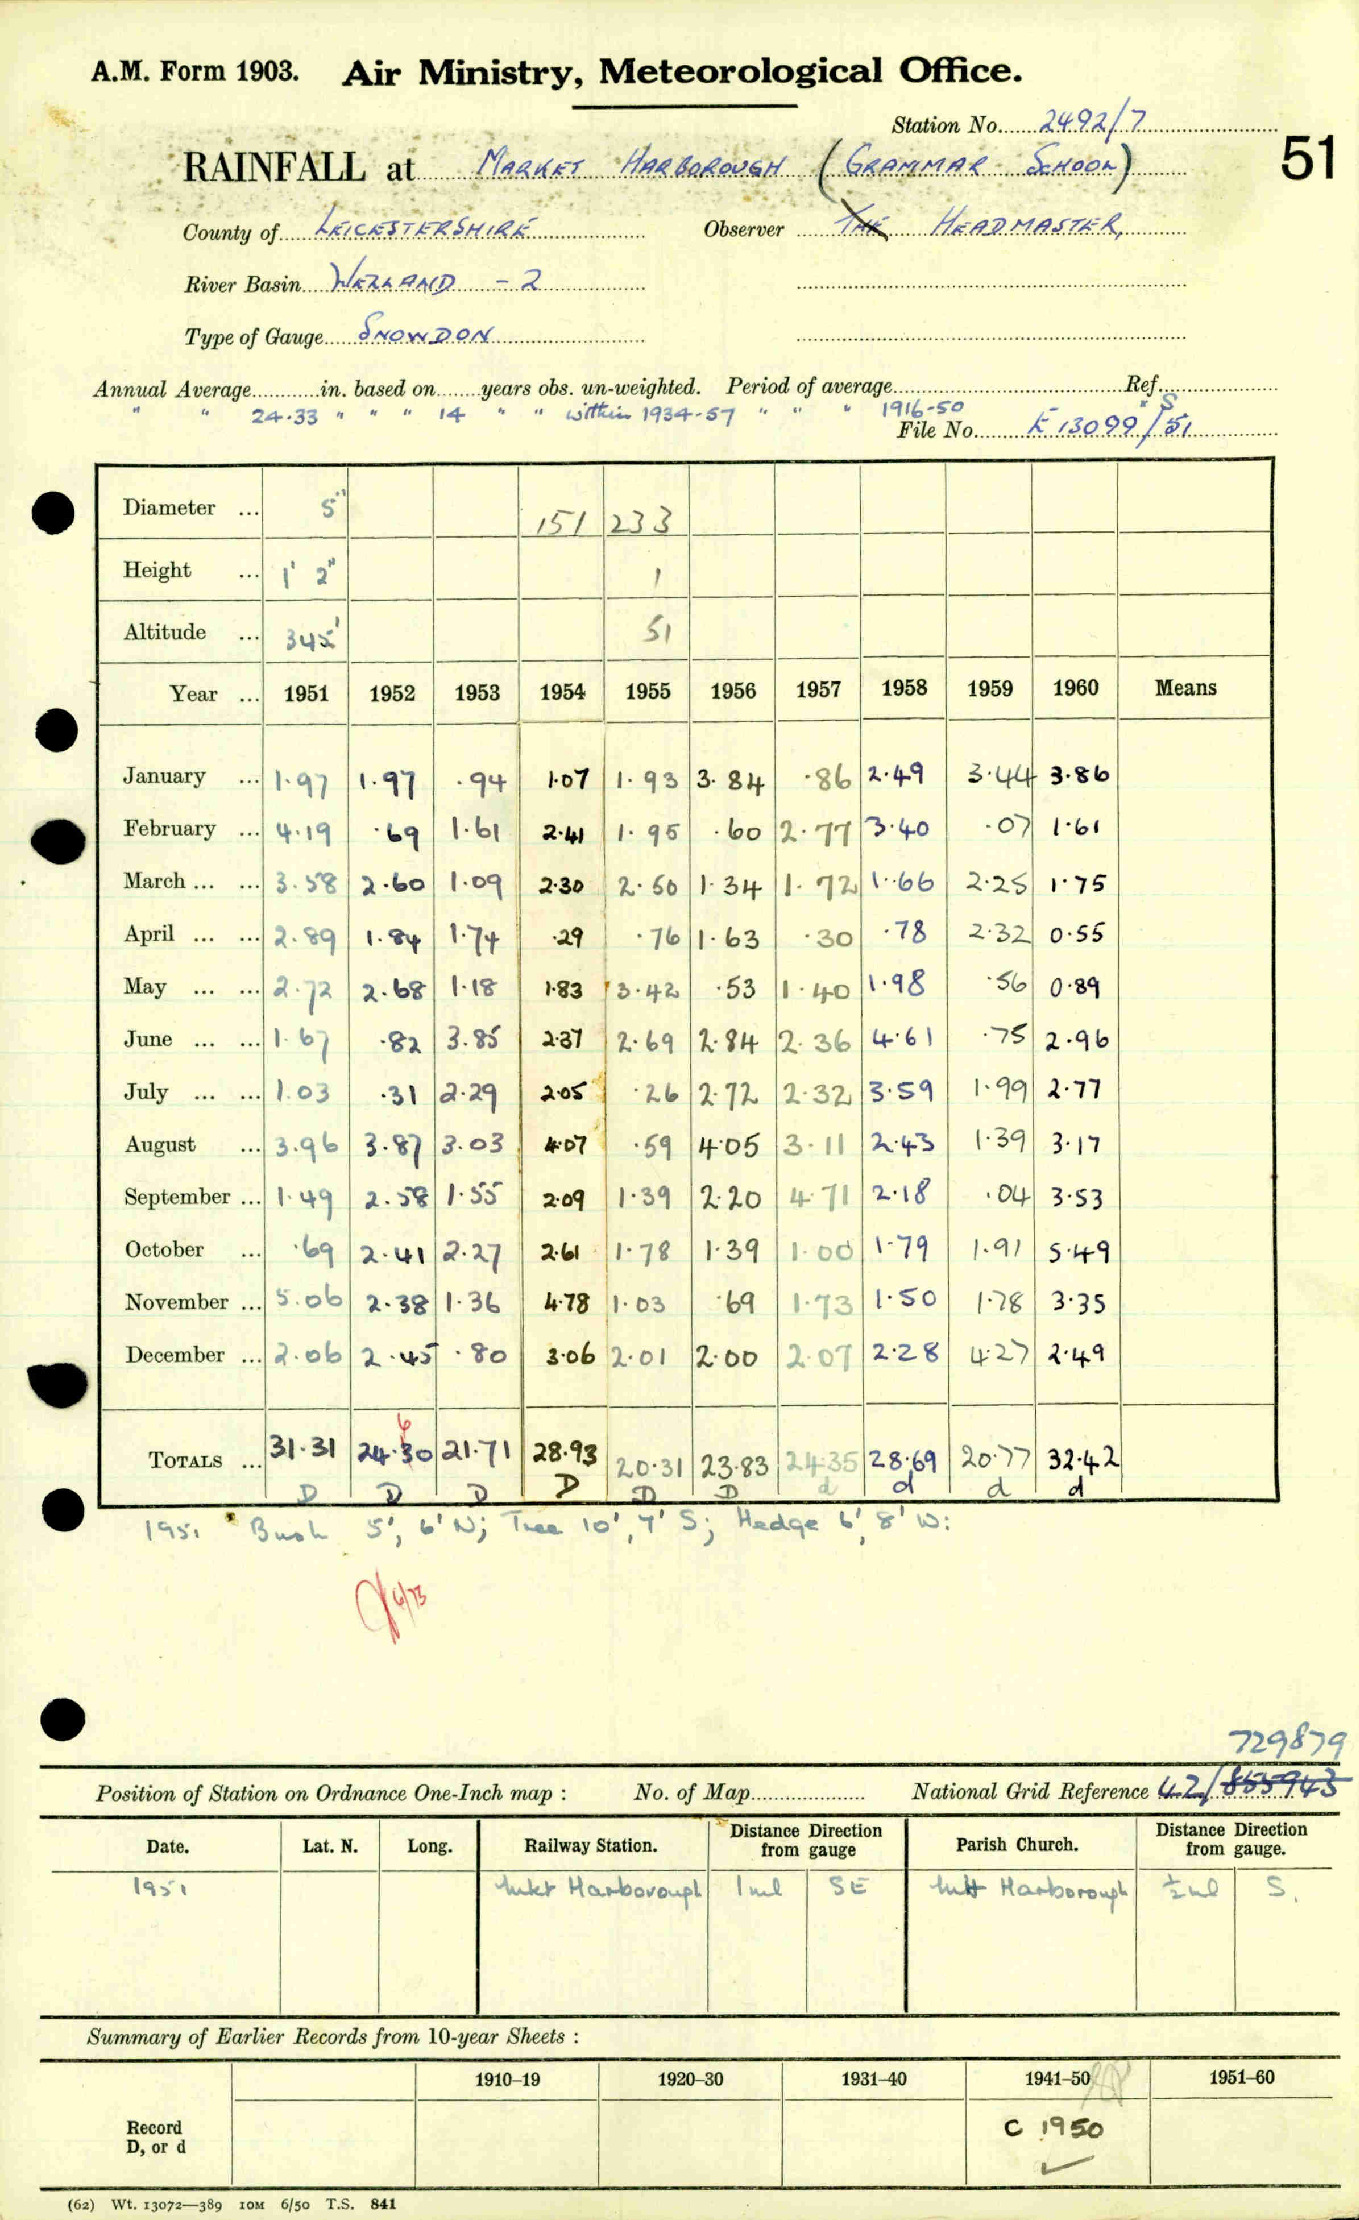 A.M. Form 1903. Air Ministry, Meteorological Office.
Station No. 2492/7
RAINFALL at MARKET HARBOROUGH (GRAMMAR SCHOOL) 51
County of LEICESTERSHIRE Observer THE HEADMASTER,
River Basin WELLAND - 2
Type of Gauge SNOWDON
Annual Average in. based on years obs. un-weighted. Period of average Ref.
" " 24.33 " " " 14 " " within 1934-57 " " " 1916-50 " S
File No. E 13099/51
Diameter ... 5" 151 233
Height ... 1' 2" 1
Altitude ... 345' 51
Year ... 1951 1952 1953 1954 1955 1956 1957 1958 1959 1960 Means
January ... 1.97 1.97 .94 1.07 1.93 3.84 .86 2.49 3.44 3.86
February ... 4.19 .69 1.61 2.41 1.95 .60 2.77 3.40 .07 1.61
March ... ... 3.58 2.60 1.09 2.30 2.50 1.34 1.72 1.66 2.25 1.75
April ... ... 2.89 1.84 1.74 .29 .76 1.63 .30 .78 2.32 0.55
May ... ... 2.72 2.68 1.18 1.83 3.42 .53 1.40 1.98 .56 0.89
June ... ... 1.67 .82 3.85 2.37 2.69 2.84 2.36 4.61 .75 2.96
July ... ... 1.03 .31 2.29 2.05 .26 2.72 2.32 3.59 1.99 2.77
August ... 3.96 3.87 3.03 4.07 .59 4.05 3.11 2.43 1.39 3.17
September ... 1.49 2.58 1.55 2.09 1.39 2.20 4.71 2.18 .04 3.53
October ... .69 2.41 2.27 2.61 1.78 1.39 1.00 1.79 1.91 5.49
November ... 5.06 2.38 1.36 4.78 1.03 .69 1.73 1.50 1.78 3.35
December ... 2.06 2.45 .80 3.06 2.01 2.00 2.07 2.28 4.27 2.49
6
TOTALS ... 31.31 24.30 21.71 28.93 20.31 23.83 24.35 28.69 20.77 32.42
D D D D D D d d d d
1951 Bush 5', 6' N; Tree 10', 7' S; Hedge 6', 8' W:
6/73
729879
Position of Station on Ordnance One-Inch map : No. of Map National Grid Reference 42/855943
Date. Lat. N. Long. Railway Station. Distance from Direction gauge Parish Church. Distance from Direction gauge.
1951 Mkt Harborough 1 ml SE Mkt Harborough ½ ml S.
Summary of Earlier Records from 10-year Sheets :
1910–19 1920–30 1931–40 1941–50 1951–60
Record
D, or d
C 1950
(62) Wt. 13072—389 10M 6/50 T.S. 841